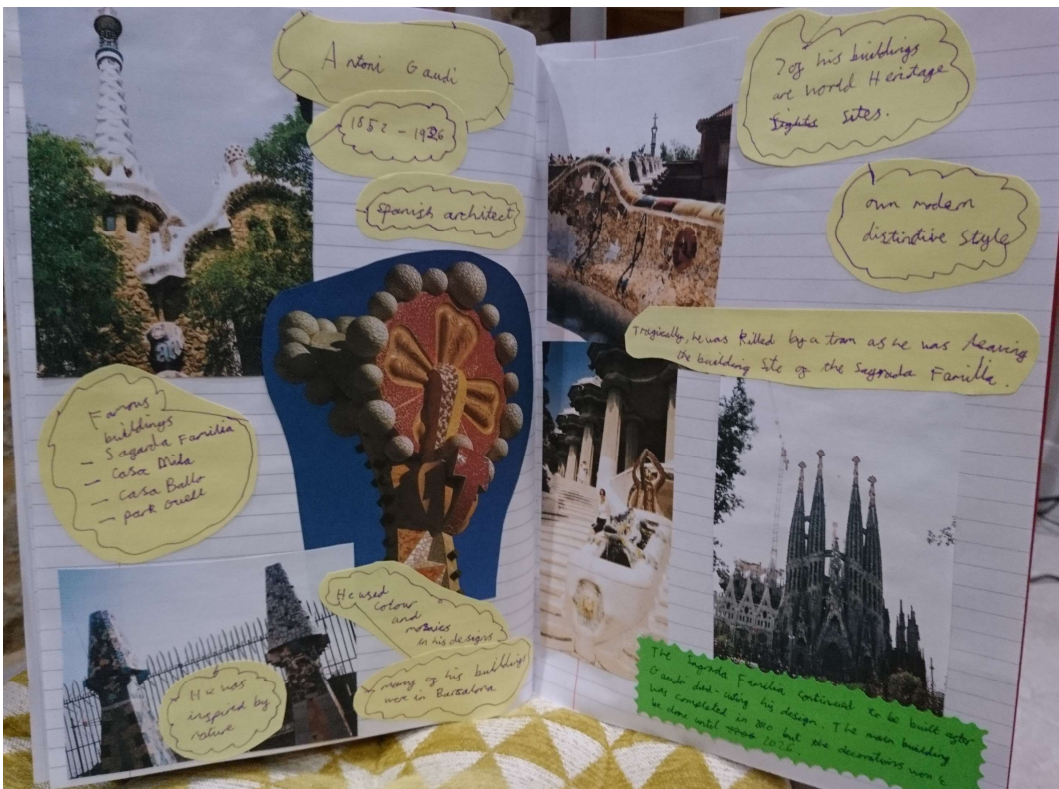 Antoni Gaudi
1852 - 1926
Spanish architect
Famous
buildings
- Sagarda Familia
- Casa Mila
- Casa Ballo
- park Guell
He used
colour
and
mosaics
in his designs
many of his buildings
were in Barcelona
He was
inspired by
nature
7 of his buildings
are world Heritage
Sites.
own modern
distinctive style
Tragically, he was killed by a tram as he was leaving
the building site of the Sagrada Familia.
The Sagrada Familia continued to be built after
Gaudi died - using his design. The main building
was completed in 2010 but the decorations won't
be done until 2026.